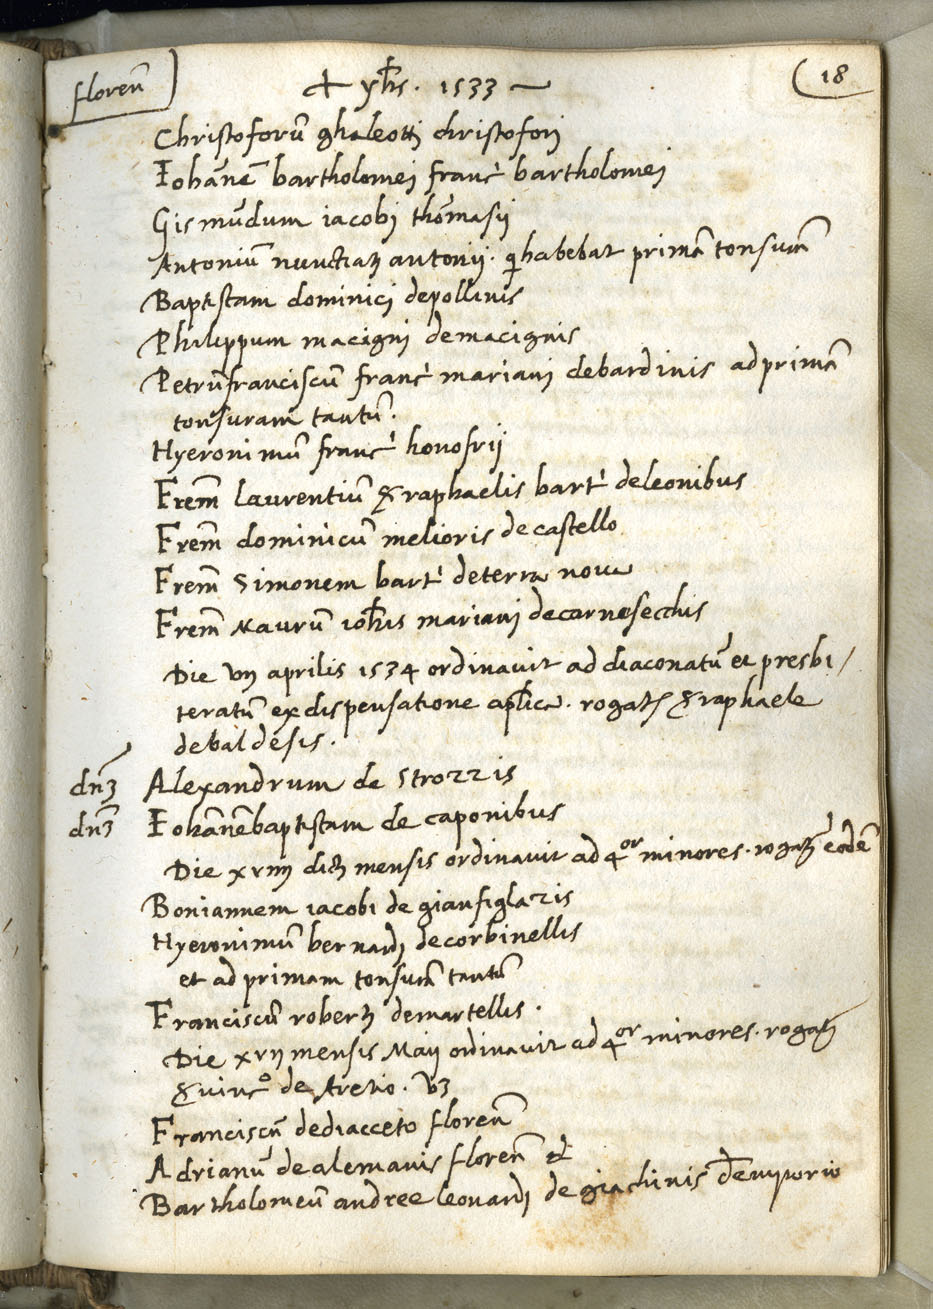 florenˉ
18
+ yhs. 1533
Christoforū ghaleotti christoforj
Iohānē bartholomej francˢ bartholomej
Gismūdum iacobj thōmasij
Antoniū nunctiatj antonij. qui habebat primā tonsurā
Baptistam dominicj depollinis
Philippum macignj demacignis
Petrūfranciscū francˢ marianj debardinis adprimā
tonsuram tantū.
Hyeronimū francˢ honofrij
Frēm laurentiū raphaelis bartˢ deleonibus
Frēm dominicū melioris de castello
Frēm Simonem bartˢ deterra nova
Frēm Maurū iohis marianj decarnesecchis
Die vij aprilis 1534 ordinavit ad diaconatū et presbi/
teratū ex dispensatione aplica. rogatˢ raphaele
debaldesis.
dnȝ Alexandrum de Strozzis
dnȝ Iohānēbaptistam de caponibus
Die xviiij dictj mensis ordinavit ad 4or minores. rogatȝ eodē
Boniannem iacobi de gianfiglazis
Hyeronimū bernardj decorbinellis
et ad primam tonsurā tantū
Franciscū robertj demartellis.
Die xvij mensis Maij ordinavit ad 4or minores. rogatȝ
vincº de Aretio. vȝ
Franciscū dediacceto florenˉ
Adrianū de alemanis florenˉ et
Bartholomeū andree leonardj de giachinis demporio